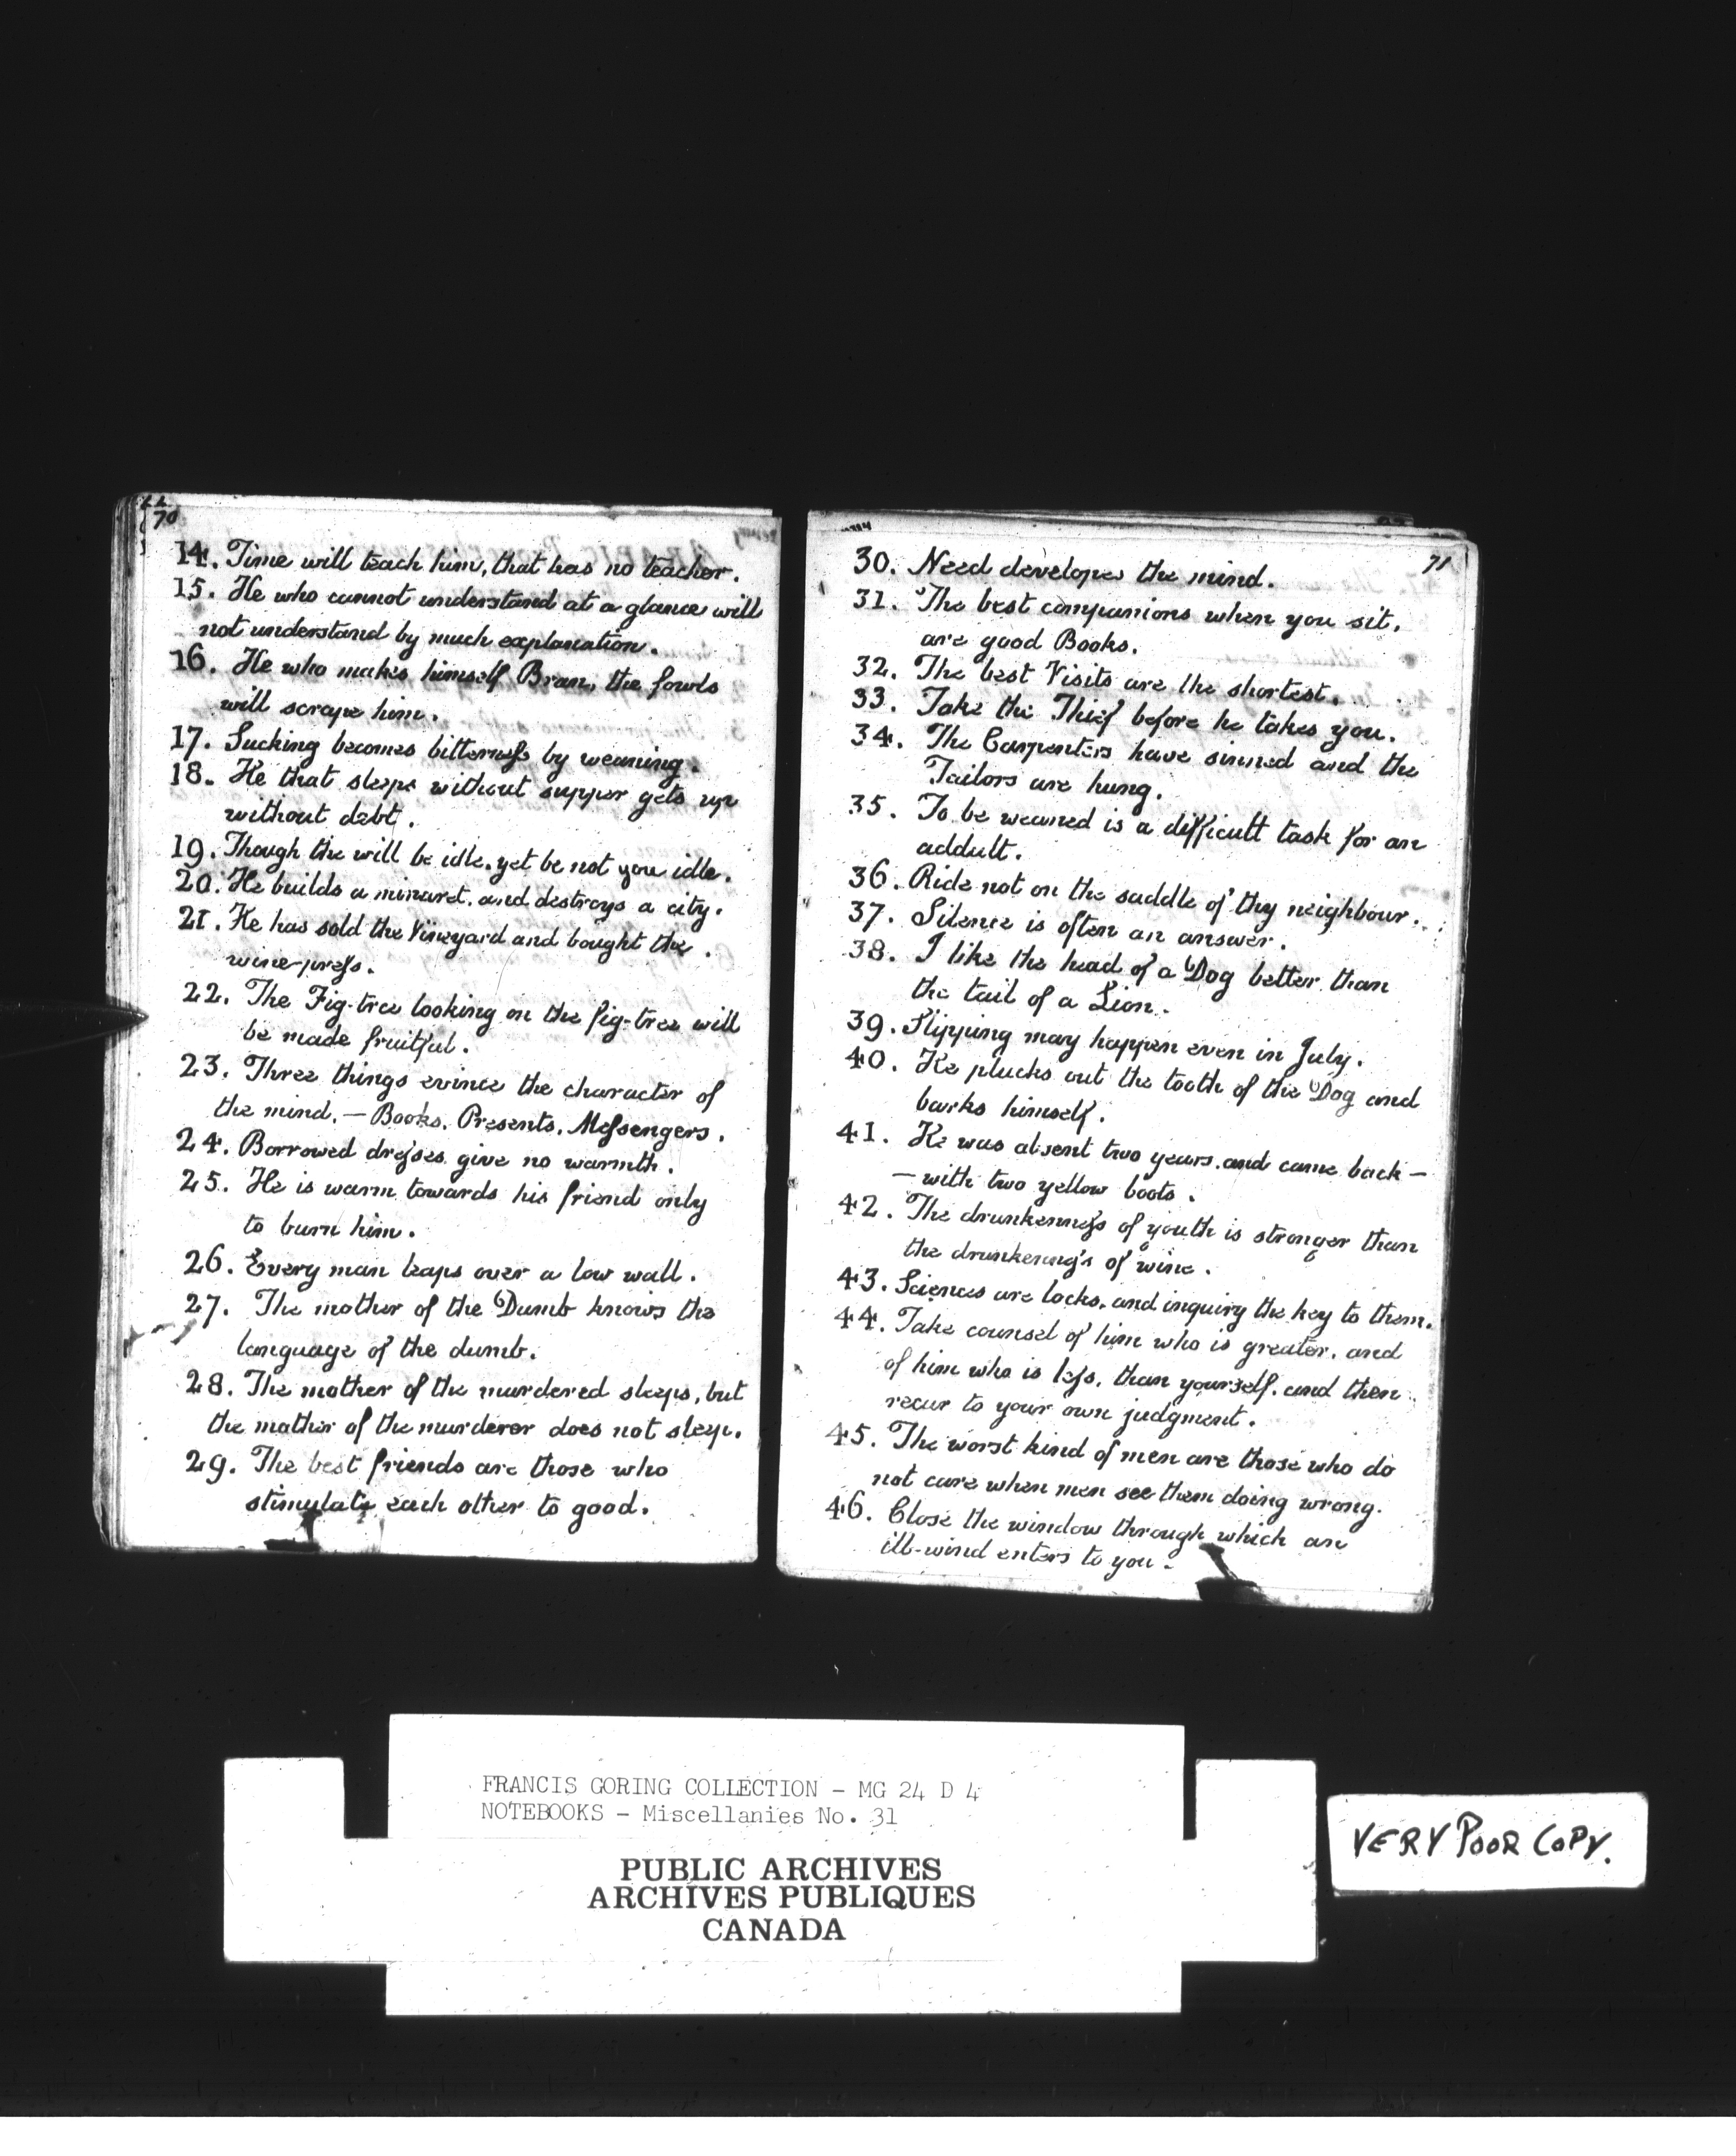 70
14. Time will teach him, that has no teacher.
15. He who cannot understand at a glance will
not understand by much explanation.
16. He who makes himself Bran, the fowls
will scrape him.
17. Sucking becomes bitterness by weaning.
18. He that sleeps without supper gets up
without debt.
19. Though the will be idle, yet be not you idle.
20. He builds a minaret, and destroys a city.
21. He has sold the Vineyard and bought the
wine-press.
22. The Fig-tree looking on the fig-tree will
be made fruitful.
23. Three things evince the character of
the mind, — Books, Presents, Messengers.
24. Borrowed dresses give no warmth.
25. He is warm towards his friend only
to burn him.
26. Every man leaps over a low wall.
27. The mother of the Dumb knows the
language of the dumb.
28. The mother of the murdered sleeps, but
the mother of the murderer does not sleep.
29. The best friends are those who
stimulate each other to good.
71
30. Need developes the mind.
31. The best companions when you sit,
are good Books.
32. The best Visits are the shortest.
33. Take the Thief before he takes you.
34. The Carpenters have sinned and the
Tailors are hung.
35. To be weaned is a difficult task for an
addult.
36. Ride not on the saddle of thy neighbour.
37. Silence is often an answer.
38. I like the head of a Dog better than
the tail of a Lion.
39. Slipping may happen even in July.
40. He plucks out the tooth of the Dog and
barks himself.
41. He was absent two years, and came back —
— with two yellow boots.
42. The drunkenness of youth is stronger than
the drunkenness of wine.
43. Sciences are locks, and inquiry the key to them.
44. Take counsel of him who is greater, and
of him who is less, than yourself, and then
recur to your own judgment.
45. The worst kind of men are those who do
not care when men see them doing wrong.
46. Close the window through which an
ill-wind enters to you.
FRANCIS GORING COLLECTION - MG 24 D 4
NOTEBOOKS - Miscellanies No. 31
PUBLIC ARCHIVES
ARCHIVES PUBLIQUES
CANADA
VERY POOR COPY.